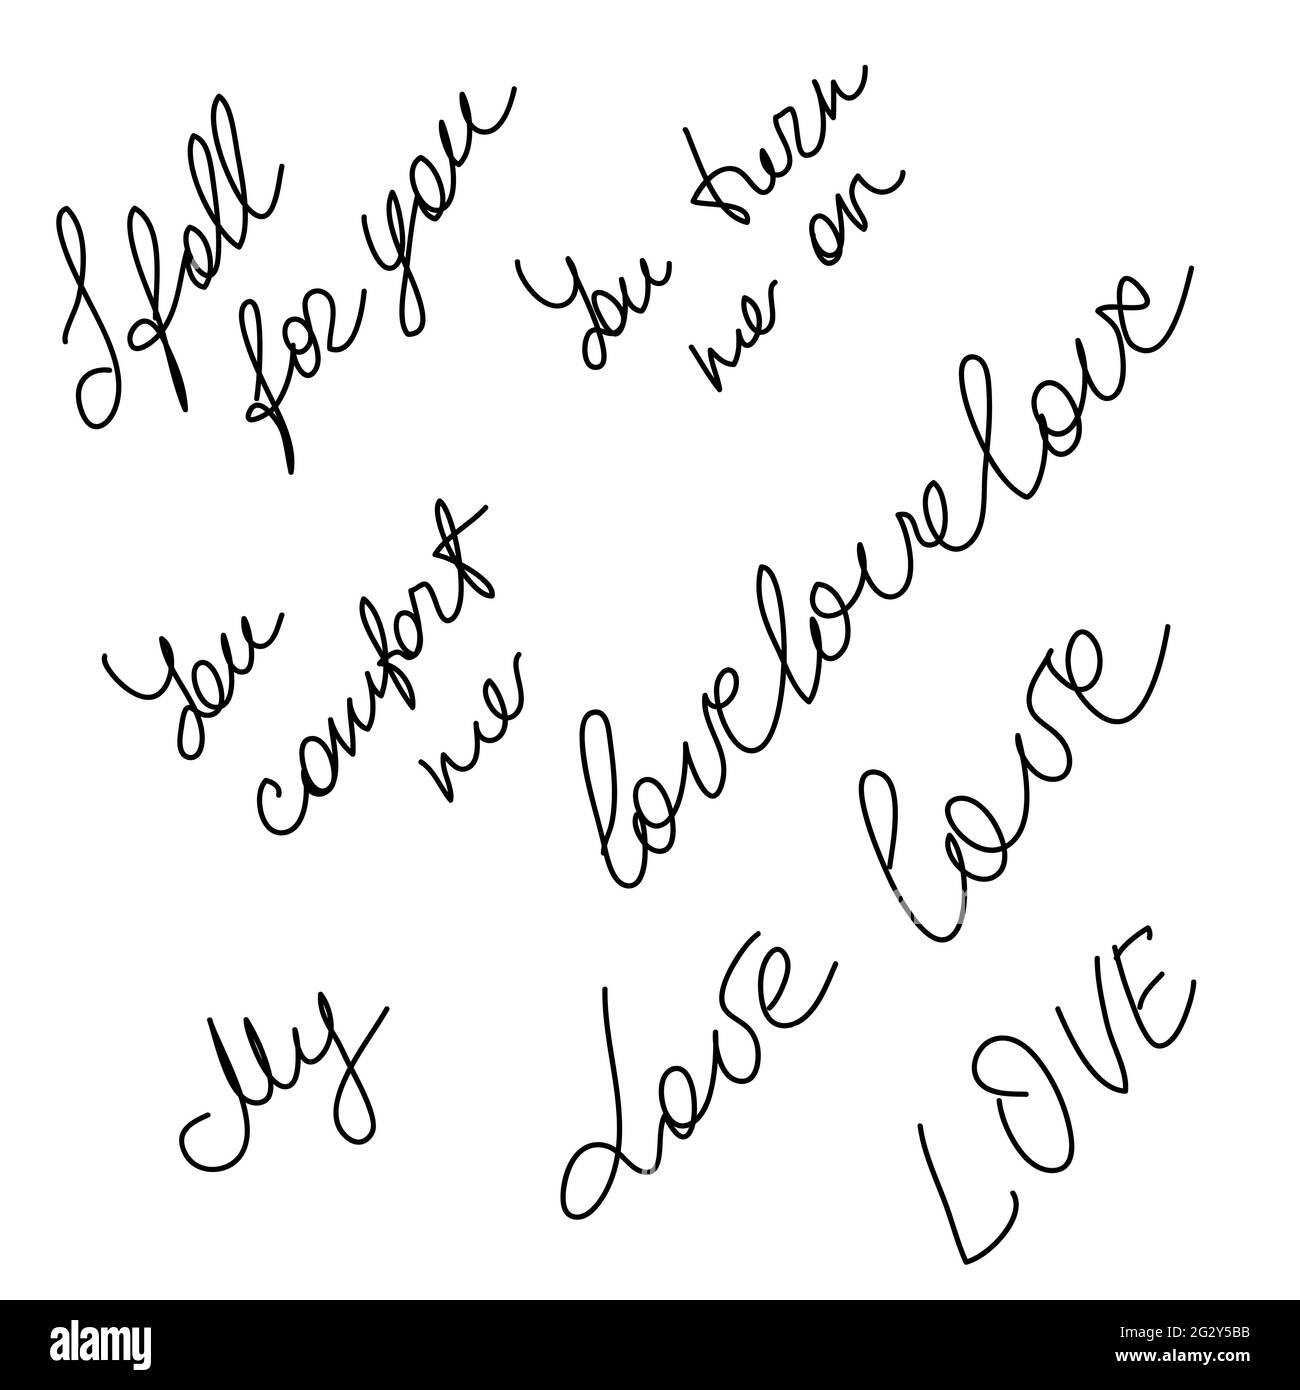 I fall
for you
You turn
me on
You
comfort
me
lovelovelove
love
My
Love
LOVE
alamy
Image ID: 2G2Y5BB
www.alamy.com